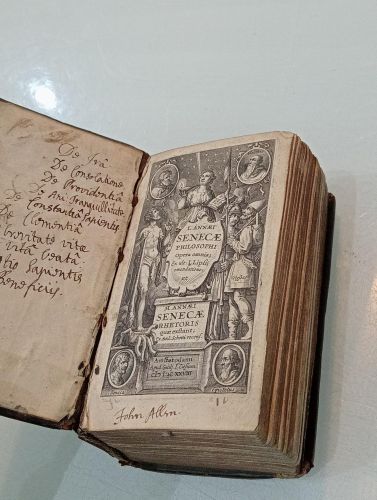 De Irâ
De Consolatione
De Providentiâ
De Ani Tranquillitate
De Constantiâ Sapientis
De Clementiâ
De brevitate vitæ
De vitâ beatâ
otio Sapientis
Beneficiis.
L. ANNÆI
SENECÆ
PHILOSOPHI
Opera omnia;
Ex ult. I. Lipsii
emendatione,
et
M. ANNÆI
SENECÆ
RHETORIS
quæ exstant;
Amsterodami
Apud Guilj. I. Cæsium
John Allin.